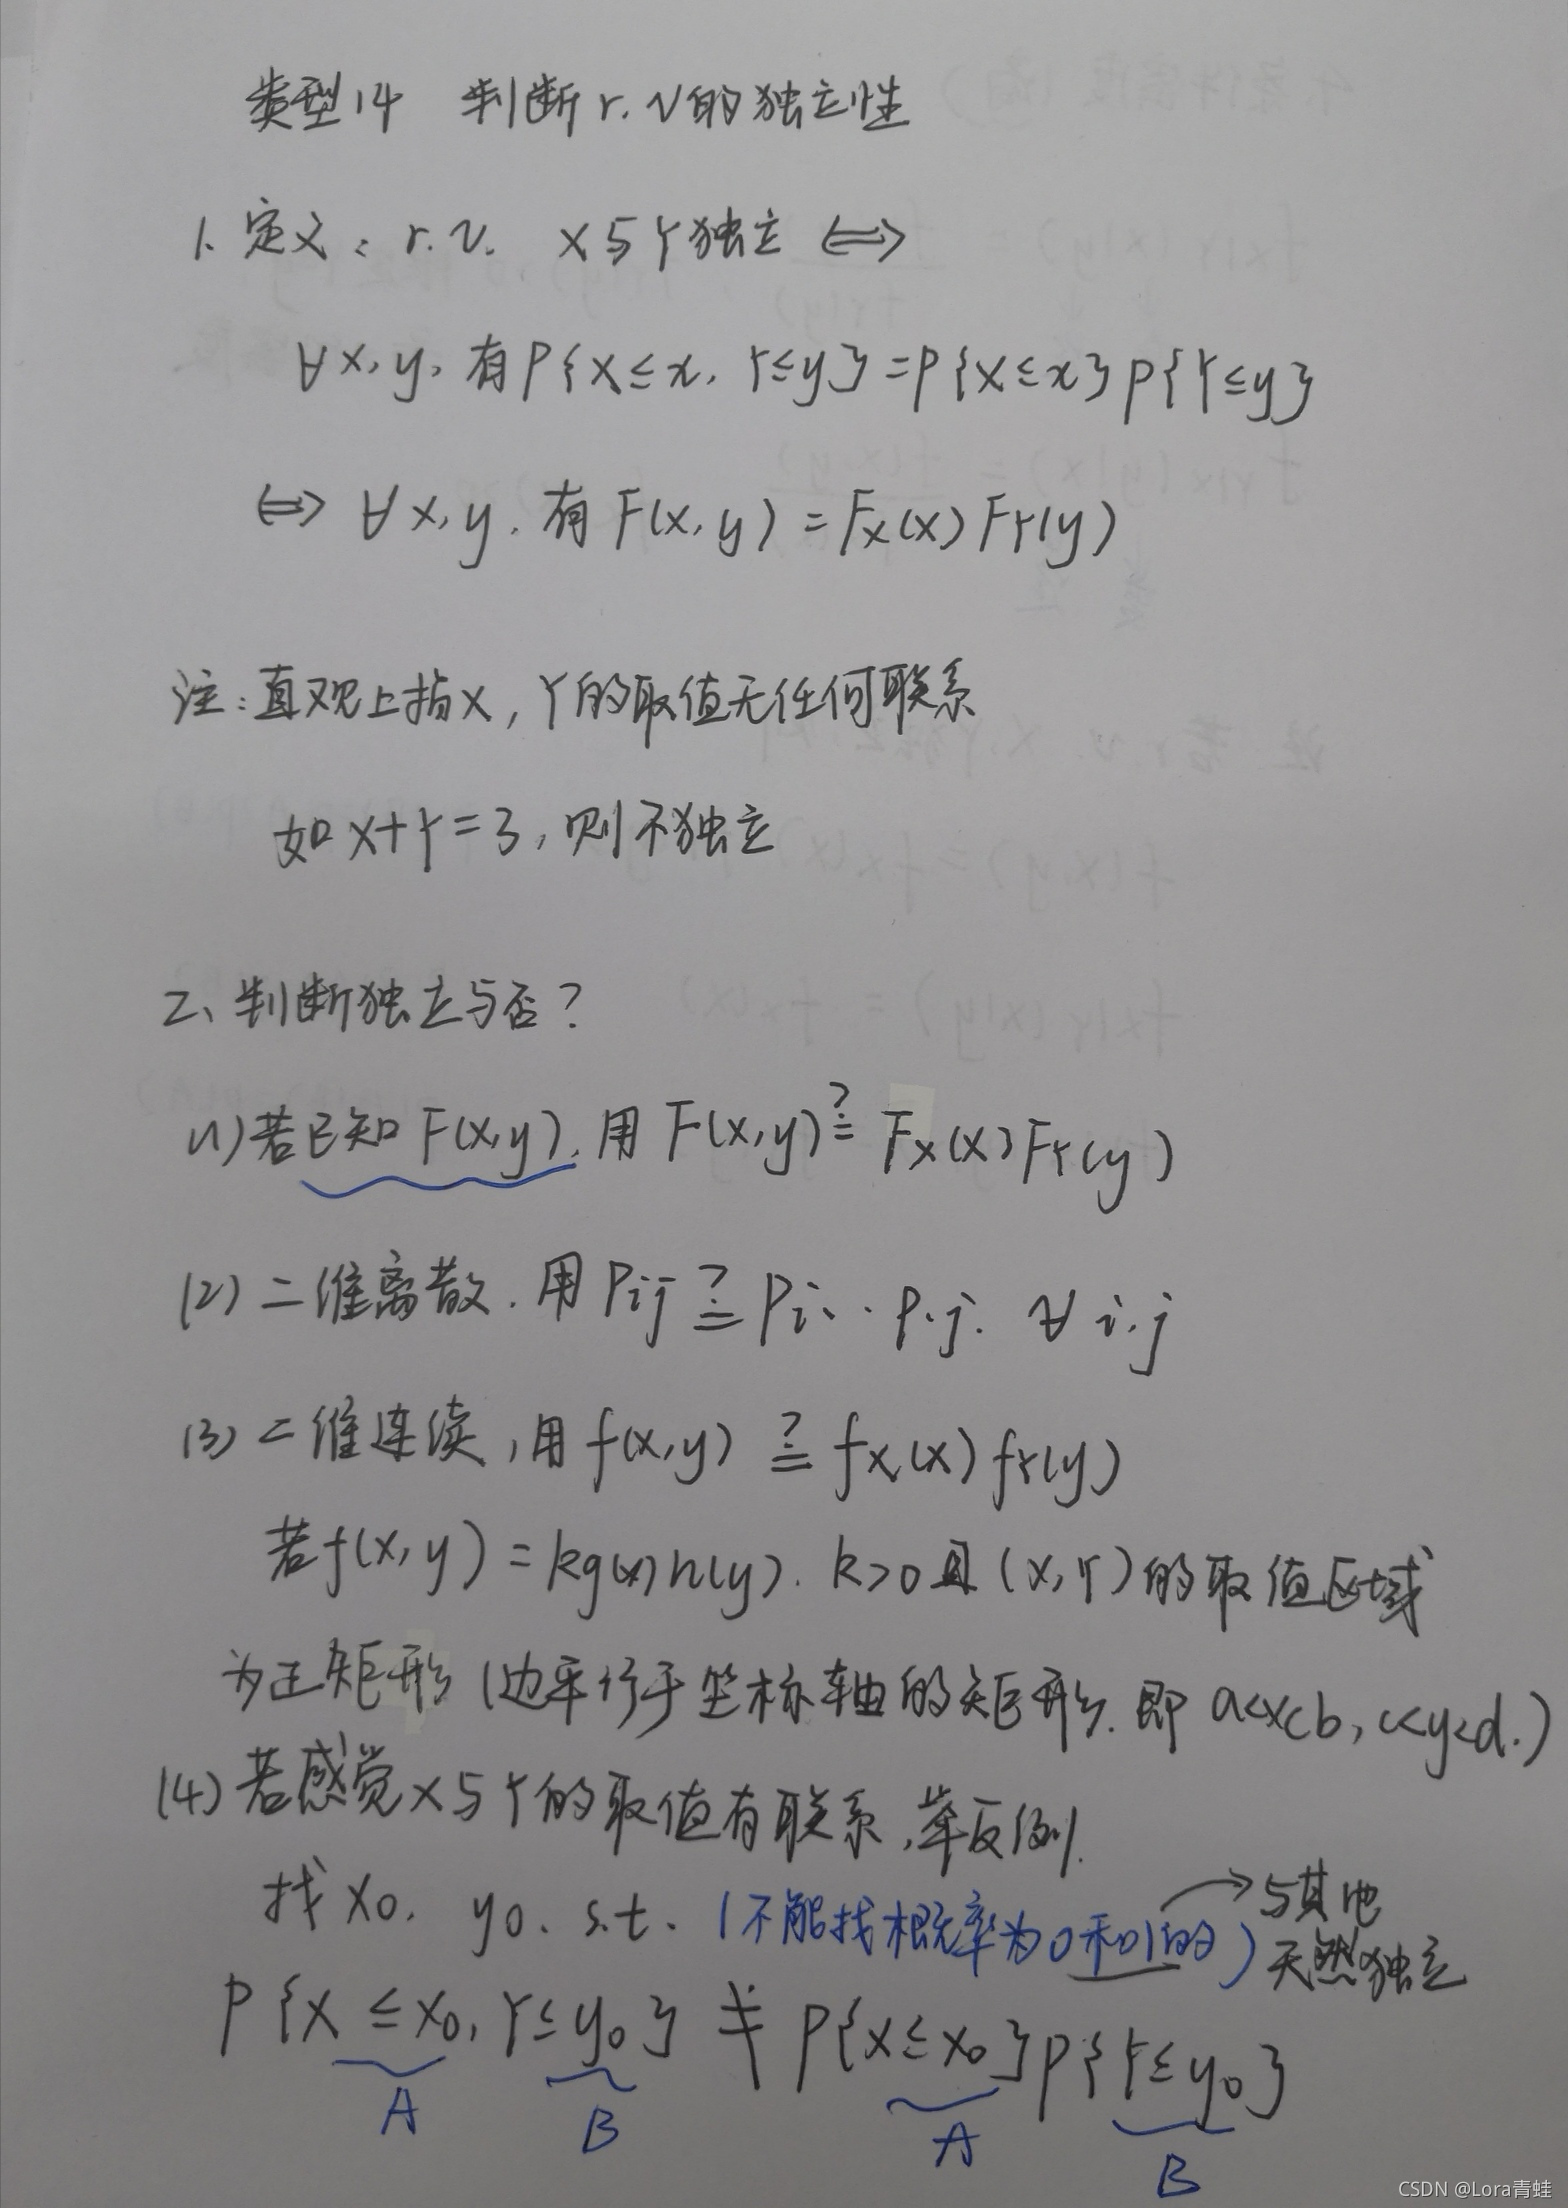 类型14 判断r.v的独立性
1. 定义: r.v. X与Y独立 ⟺
∀x,y, 有P{X≤x, Y≤y}=P{X≤x}P{Y≤y}
⟺ ∀x,y. 有F(x,y)=F_X(x)F_Y(y)
注:直观上指X,Y的取值无任何联系
如X+Y=3,则不独立
2、判断独立与否?
(1)若已知F(x,y),用F(x,y)≟F_X(x)F_Y(y)
(2)二维离散.用Pij≟Pi.·P.j. ∀i.j
(3)二维连续,用f(x,y)≟f_X(x)f_Y(y)
若f(x,y)=kg(x)h(y).k>0且(X,Y)的取值区域
为正矩形(边平行于坐标轴的矩形.即a<x<b,c<y<d.)
(4)若感觉X与Y的取值有联系,举反例.
找x0. y0. s.t. (不能找概率为0和1的)→与其他
天然独立
P{X≤x0,Y≤y0}≠P{X≤x0}P{Y≤y0}
A B A B
CSDN @Lora青蛙